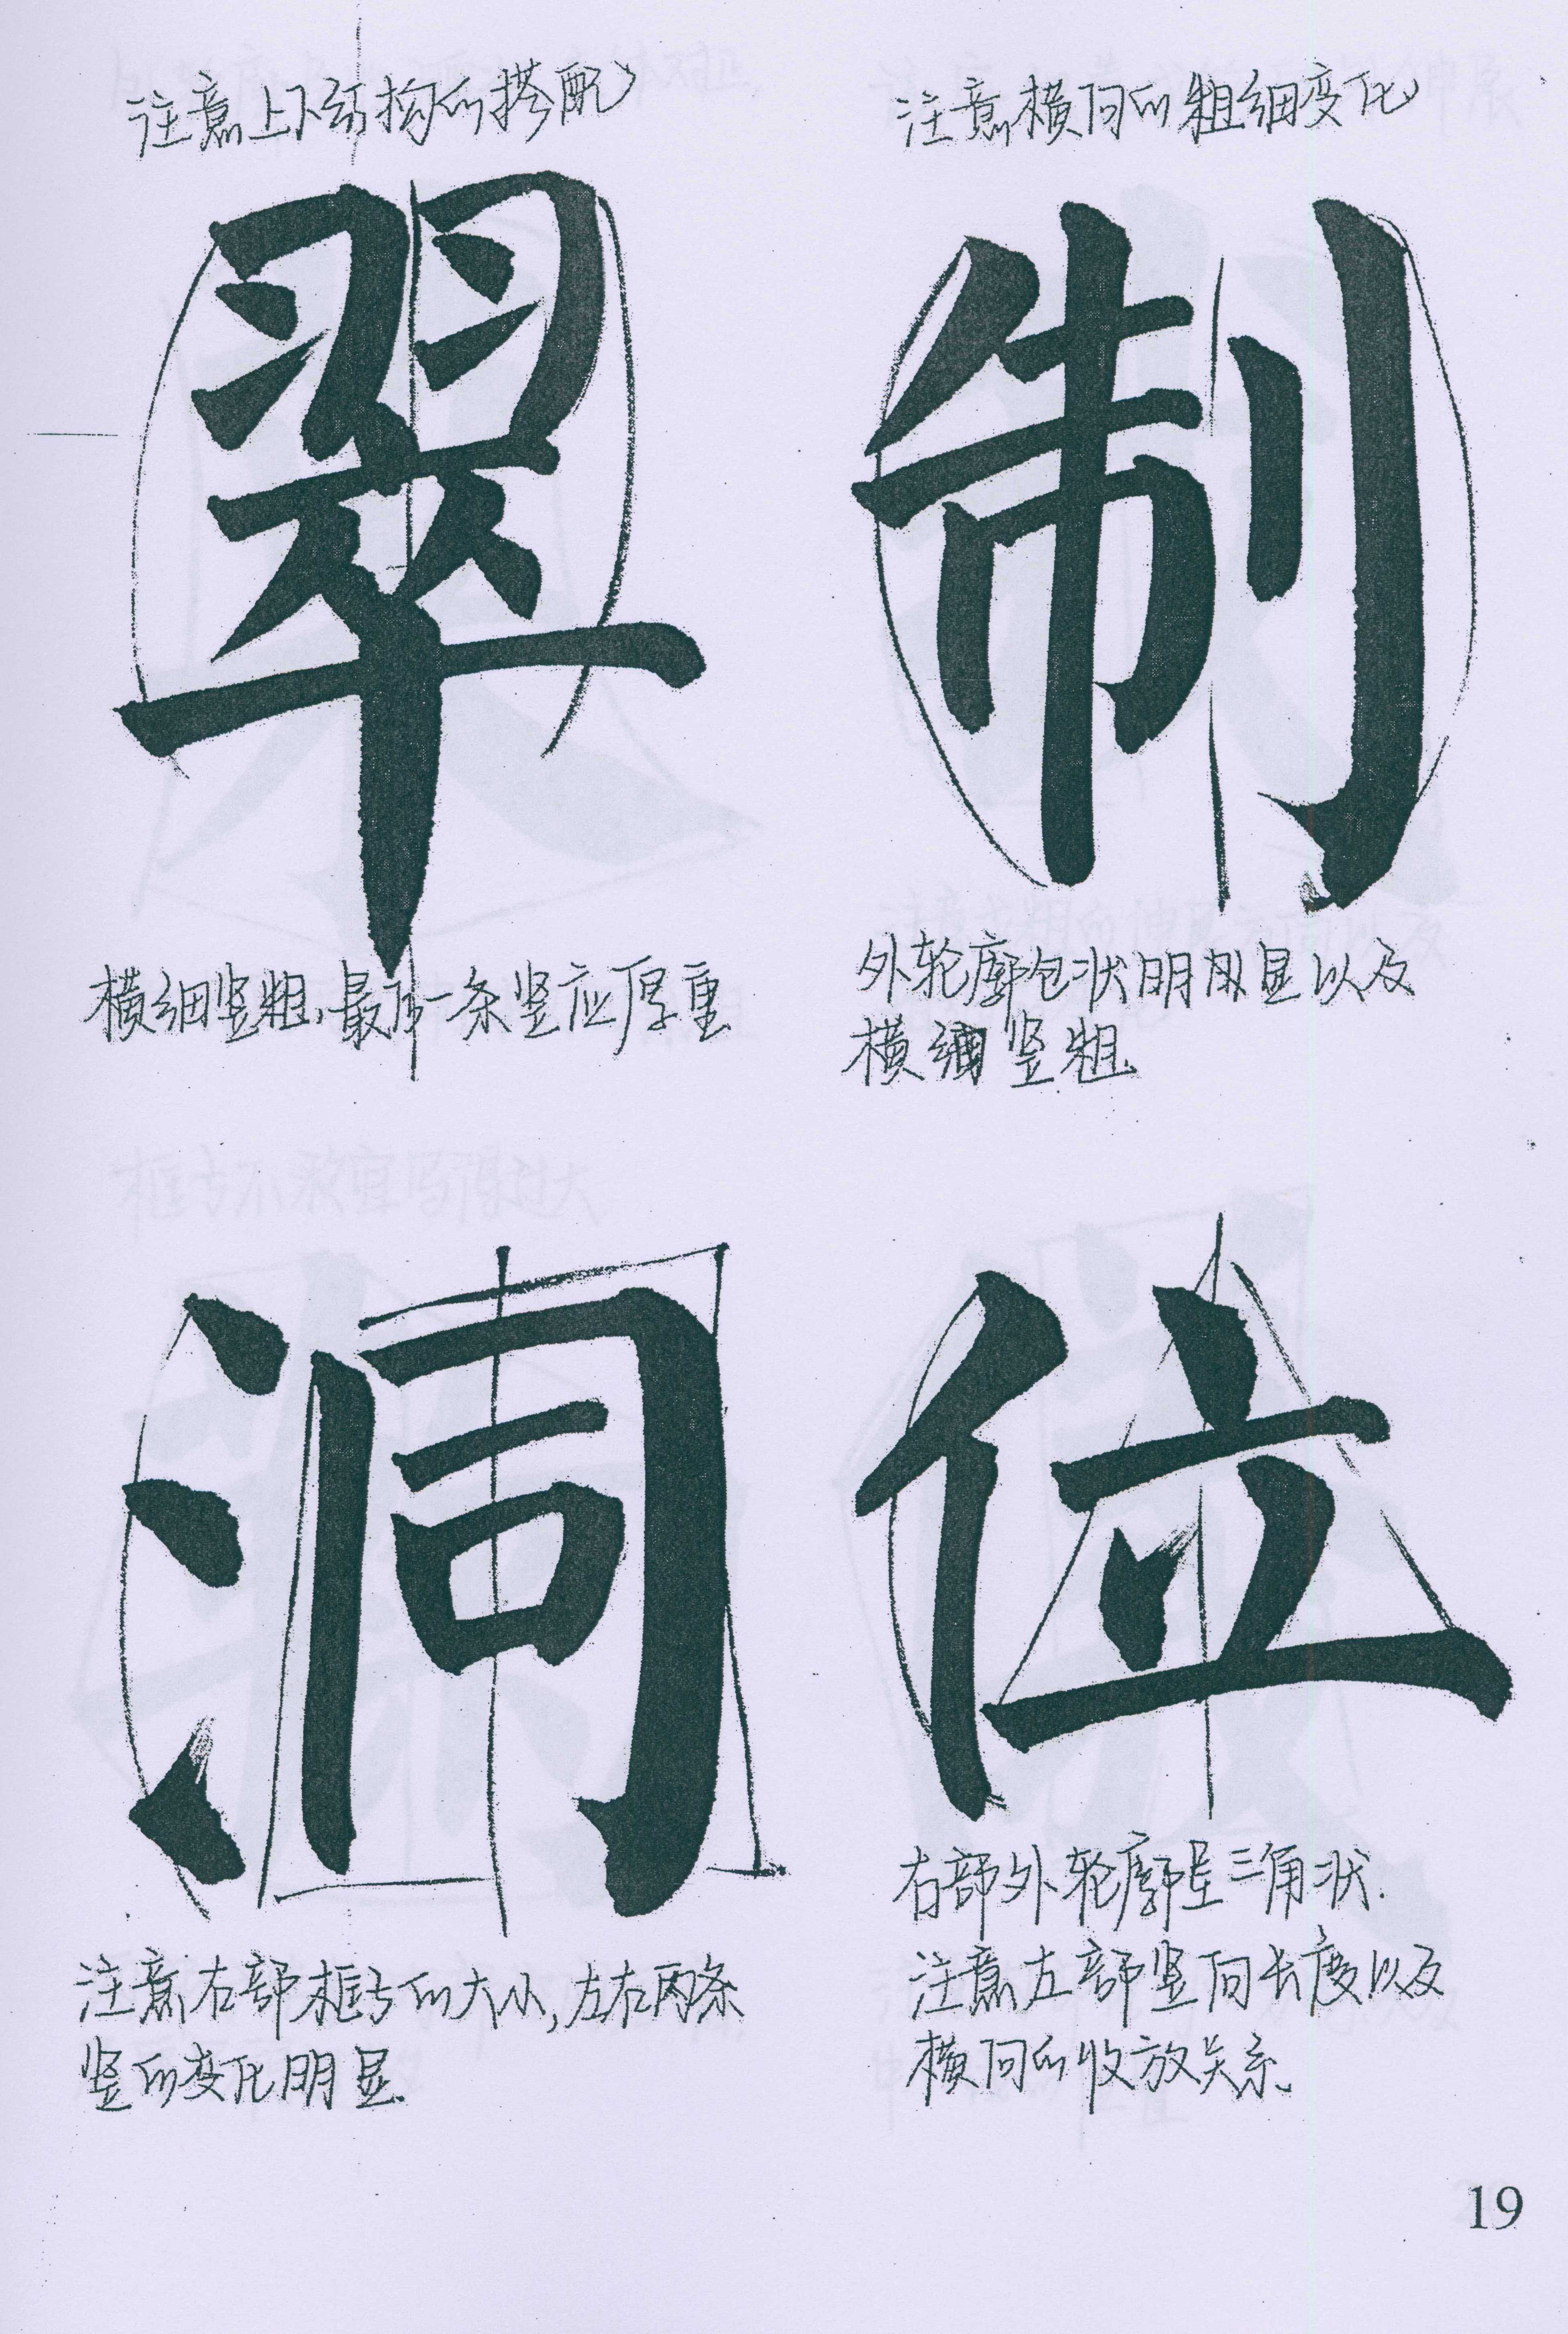 注意上下结构的搭配
翠
横细竖粗,最后一条竖应厚重
注意横向的粗细变化
制
外轮廓包状明显以及
横细竖粗.
洞
注意右部框与的大小,左右两条
竖的变化明显.
位
右部外轮廓呈三角状.
注意左部竖向长度以及
横向的收放关系.
19